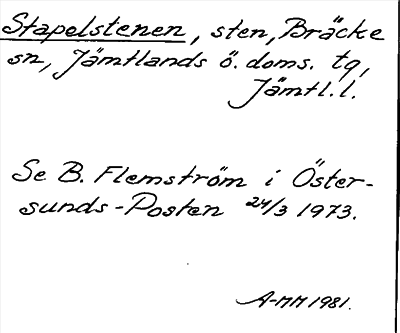 Stapelstenen, sten, Bräcke
sn, Jämtlands ö. doms. tg,
Jämtl. l.
Se B. Flemström i Öster-
sunds-Posten 24/3 1973.
A-MM 1981.